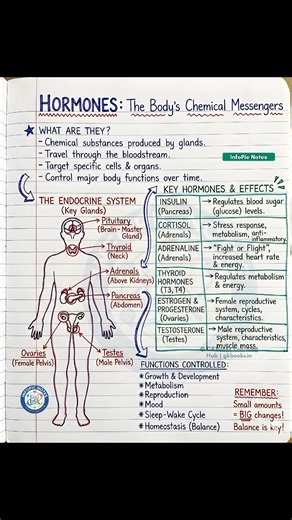 HORMONES: The Body's Chemical Messengers
WHAT ARE THEY?
- Chemical substances produced by glands.
- Travel through the bloodstream.
- Target specific cells & organs.
- Control major body functions over time.
InfoPie Notes
THE ENDOCRINE SYSTEM
(Key Glands)
Pituitary
(Brain-Master
Gland)
Thyroid
(Neck)
Adrenals
(Above Kidneys)
Pancreas
(Abdomen)
Ovaries
(Female Pelvis)
Testes
(Male Pelvis)
KEY HORMONES & EFFECTS
INSULIN
(Pancreas)
→ Regulates blood sugar
(glucose) levels.
CORTISOL
(Adrenals)
→ Stress response,
metabolism, anti-
inflammatory.
ADRENALINE
(Adrenals)
→ "Fight or Flight",
increased heart rate
& energy.
THYROID
HORMONES
(T3, T4)
→ Regulates metabolism &
energy.
ESTROGEN &
PROGESTERONE
(Ovaries)
→ Female reproductive
system, cycles,
characteristics.
TESTOSTERONE
(Testes)
→ Male reproductive
system, characteristics,
muscle mass.
Hub | gkbooks.in
FUNCTIONS CONTROLLED:
* Growth & Development
* Metabolism
* Reproduction
* Mood
* Sleep-Wake Cycle
* Homeostasis (Balance)
REMEMBER:
Small amounts
= BIG changes!
Balance is key!